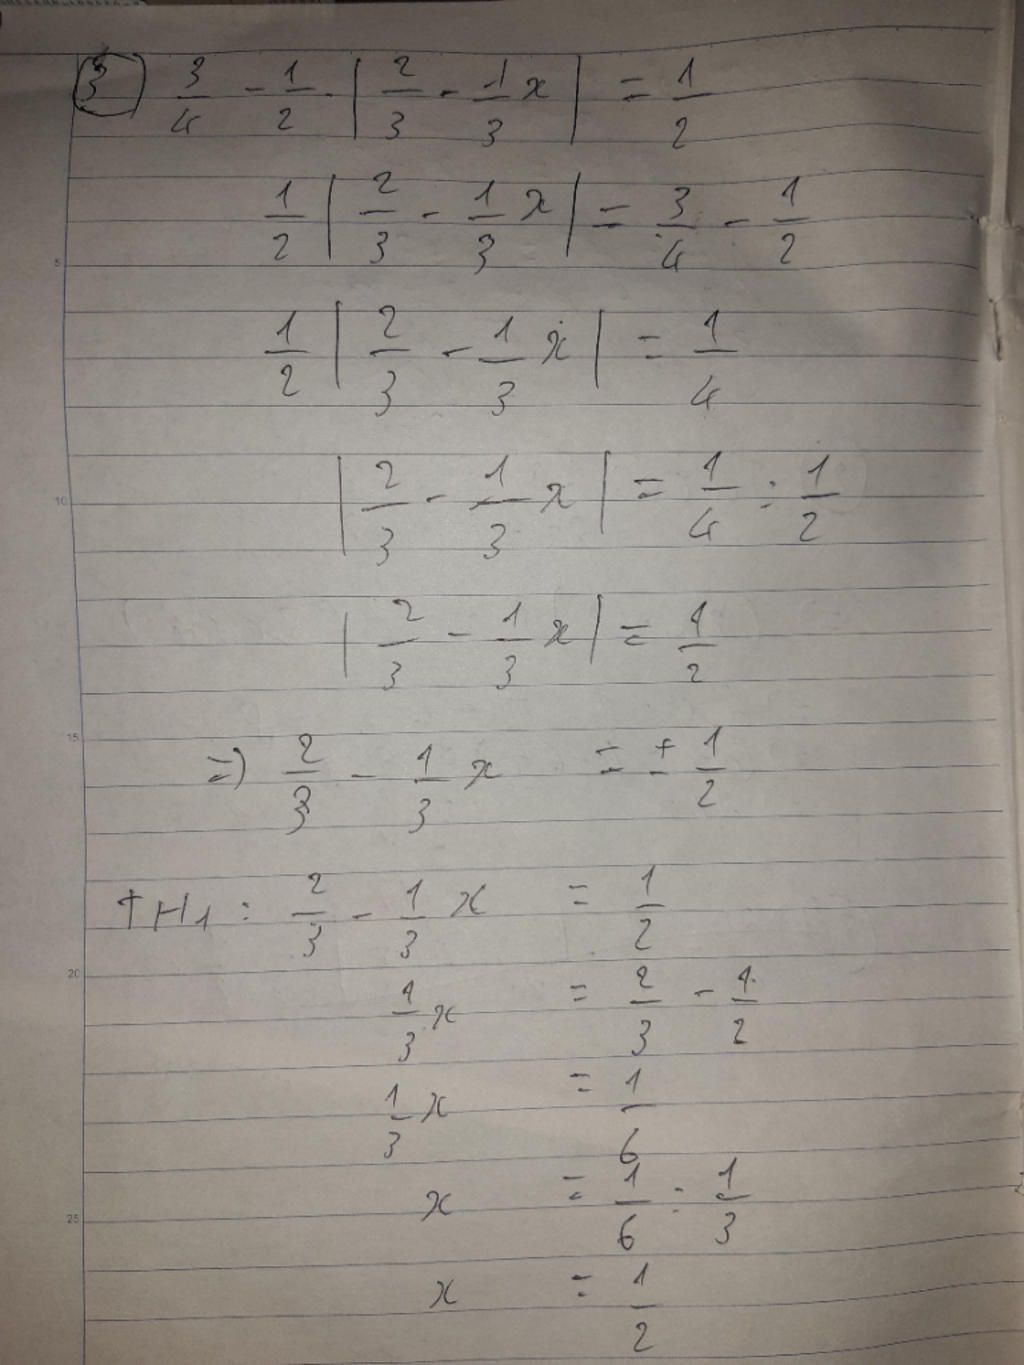 3) 3/4 - 1/2 . | 2/3 - 1/3 x | = 1/2
1/2 | 2/3 - 1/3 x | = 3/4 - 1/2
5
1/2 | 2/3 - 1/3 x | = 1/4
10
| 2/3 - 1/3 x | = 1/4 : 1/2
| 2/3 - 1/3 x | = 1/2
15
=) 2/3 - 1/3 x = ± 1/2
TH1 : 2/3 - 1/3 x = 1/2
20
1/3 x = 2/3 - 1/2
1/3 x = 1/6
x = 1/6 : 1/3
25
x = 1/2